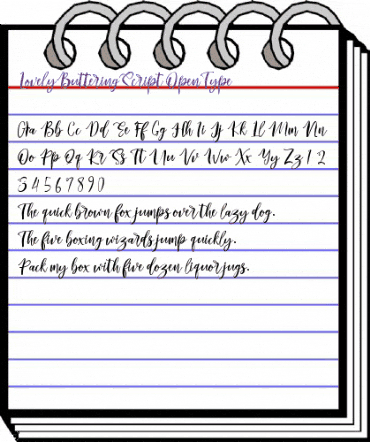 Lovely Buttering Script OpenType
Aa Bb Cc Dd Ee Ff Gg Hh Ii Jj Kk Ll Mm Nn
Oo Pp Qq Rr Ss Tt Uu Vv Ww Xx Yy Zz 1 2
3 4 5 6 7 8 9 0
The quick brown fox jumps over the lazy dog.
The five boxing wizards jump quickly.
Pack my box with five dozen liquor jugs.